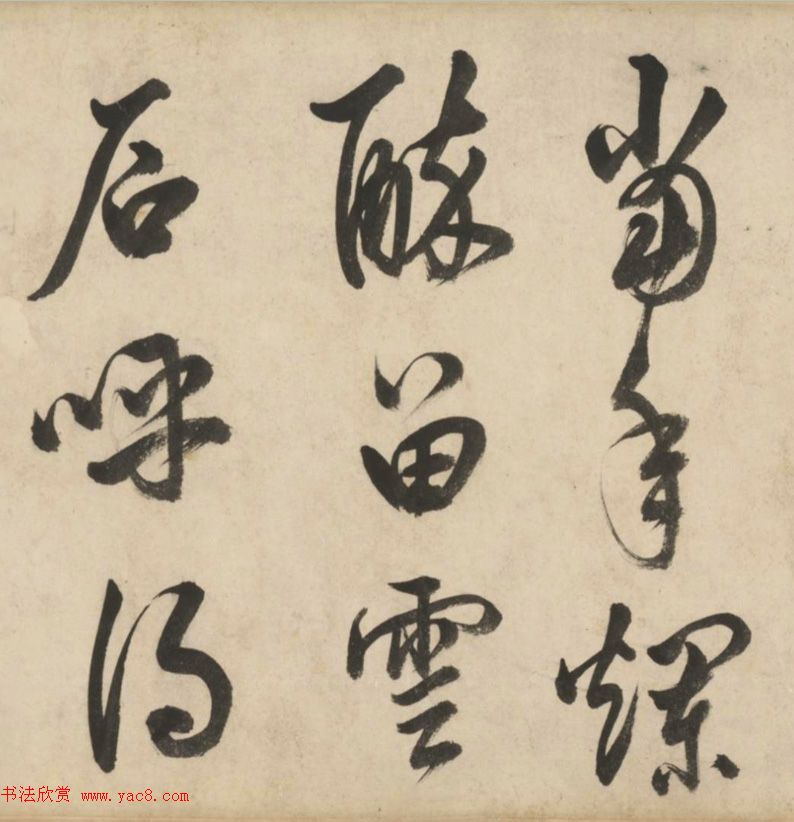 當年爛
醉留雲
石呼得
书法欣赏 www.yac8.com